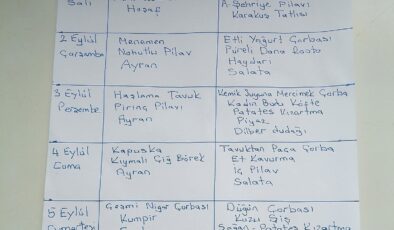 Salı
Hoşaf
A. Şehriye Pilavı
Karakuş Tatlısı
2 Eylül
Çarşamba
Menemen
Nohutlu Pilav
Ayran
Etli Yoğurt Çorbası
Püreli Dana Rosto
Haydari
Salata
3 Eylül
Perşembe
Haşlama Tavuk
Pirinç Pilavı
Ayran
Kemik Suyuna Mercimek Çorba
Kadın Budu Köfte
Patates Kızartma
Piyaz
Dilber dudağı
4 Eylül
Cuma
Kapuska
Kıymalı Çiğ Börek
Ayran
Tavuktan Paça Çorba
Et Kavurma
İç Pilav
Salata
5 Eylül
Cumartesi
Çeşmi Nigar Çorbası
Kumpir
Düğün Çorbası
Kuzu Şiş
Soğan - Patates Kızartma